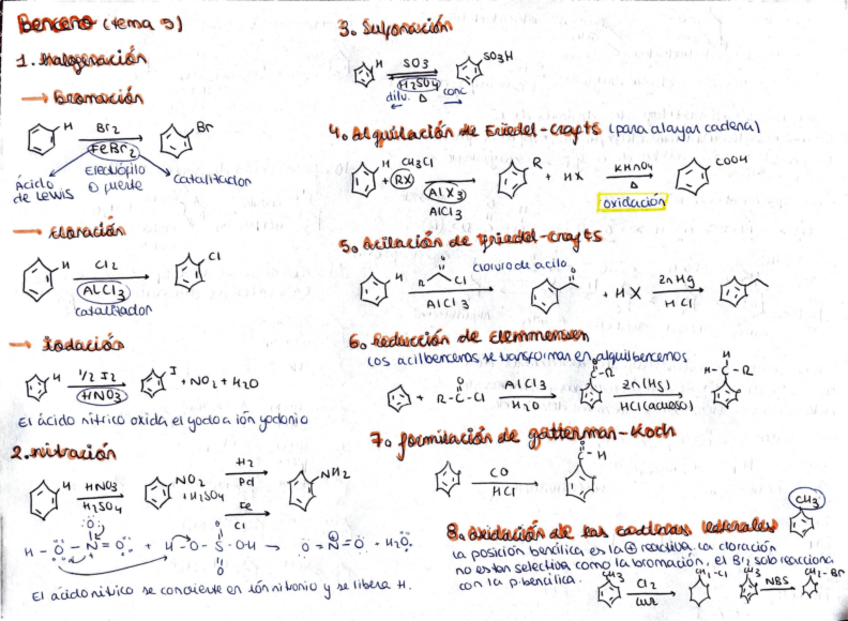 Benceno (tema 5)
1. Halogenación
→ Bromación
H Br2 Br
FeBr2
Ácido de Lewis
Electrófilo
fuerte
catalizador
→ Cloración
H Cl2 Cl
AlCl3
catalizador
→ Iodación
H 1/2 I2 I + NO2 + H2O
HNO3
El ácido nítrico oxida el yodo a ión yodonio
2. nitración
H HNO3 NO2 H2 NH2
H2SO4 + H2SO4 Pd
Fe
Cl
H - O - N = O + H - O - S - OH → O = N = O + H2O
El ácido nítrico se convierte en ión nitronio y se libera H.
3. Sulfonación
H SO3 SO3H
H2SO4
dilu. Δ conc.
4. Alquilación de Friedel-crafts (para alargar cadena)
H CH3Cl R KMnO4 COOH
+ RX AlX3 + HX Δ
AlCl3 oxidación
5. Acilación de Friedel-crafts
cloruro de acilo
H R O Cl O Zn Hg
AlCl3 + HX HCl
6. Reducción de Clemmensen
Los acilbencenos se transforman en alquilbencenos
+ R-C-Cl AlCl3 C-R Zn(Hg) H-C-R
O H2O O HCl(acuoso) H
7. formilación de gatterman-Koch
CO C-H
HCl O
8. oxidación de las cadenas laterales CH3
La posición bencílica es la ⊕ reactiva. La cloración
no es tan selectiva como la bromación, el Br2 solo reacciona
con la p.bencílica.
CH3 Cl2 CH2-Cl CH3 NBS CH2-Br
luz